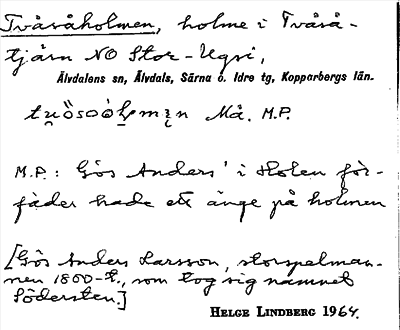 Tvåråholmen, holme i Tvårå-
tjärn NO Stor-Ugsi,
Älvdalens sn, Älvdals, Särna o. Idre tg, Kopparbergs län.
Må. M.P.
M.P.: Gös Anders' i Holen för-
fäder hade ett änge på holmen
[Gös Anders Larsson, storspelman-
nen 1800-t., som tog sig namnet
Södersten.]
HELGE LINDBERG 1964.